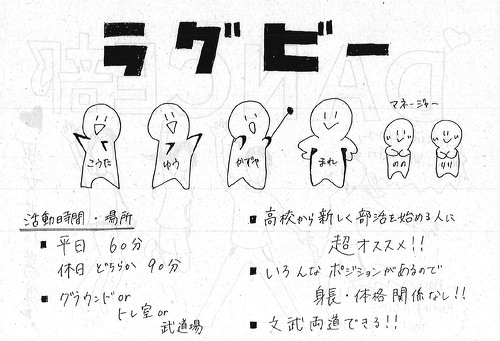 ラグビー
マネージャー
こうた
ゆう
かずや
まれ
のの
りり
活動時間・場所
■ 平日 60分
休日 どちらか 90分
■ グラウンド or
トレ室 or
武道場
■ 高校から新しく部活を始める人に
超オススメ!!
■ いろんなポジションがあるので
身長・体格関係なし!!
■ 文武両道できる!!